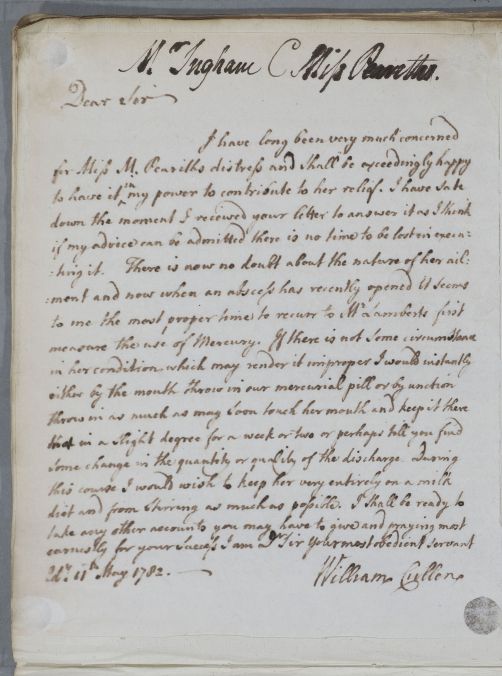 Mr Ingham C Miss Peariths.
Dear Sir
I have long been very much concerned
for Miss M. Peariths distress and shall be exceedingly happy
to have it in my power to contribute to her relief. I have sate
down the moment I received your letter to answer it as I think
if my advice can be admitted there is no time to be lost in execu:
:ting it. There is now no doubt about the nature of her ail:
:ment and now when an abscess has recently opened it seems
to me the most proper time to recurr to Mr Lamberts first
measure the use of Mercury. If there is not some circumstance
in her condition which may render it improper I would instantly
either by the mouth throw in our mercurial pill or by unction
throw in as much as may soon touch her mouth and keep it there
in a slight degree for a week or two or perhaps till you find
some change in the quantity or quality of the discharge. During
this course I would wish to keep her very entirely on a milk
diet and from stirring as much as possible. I shall be ready to
take any other accounts you may have to give and praying most
earnestly for your success I am Dr Sir your most obedient servant
Edr 11th May 1782.
William Cullen